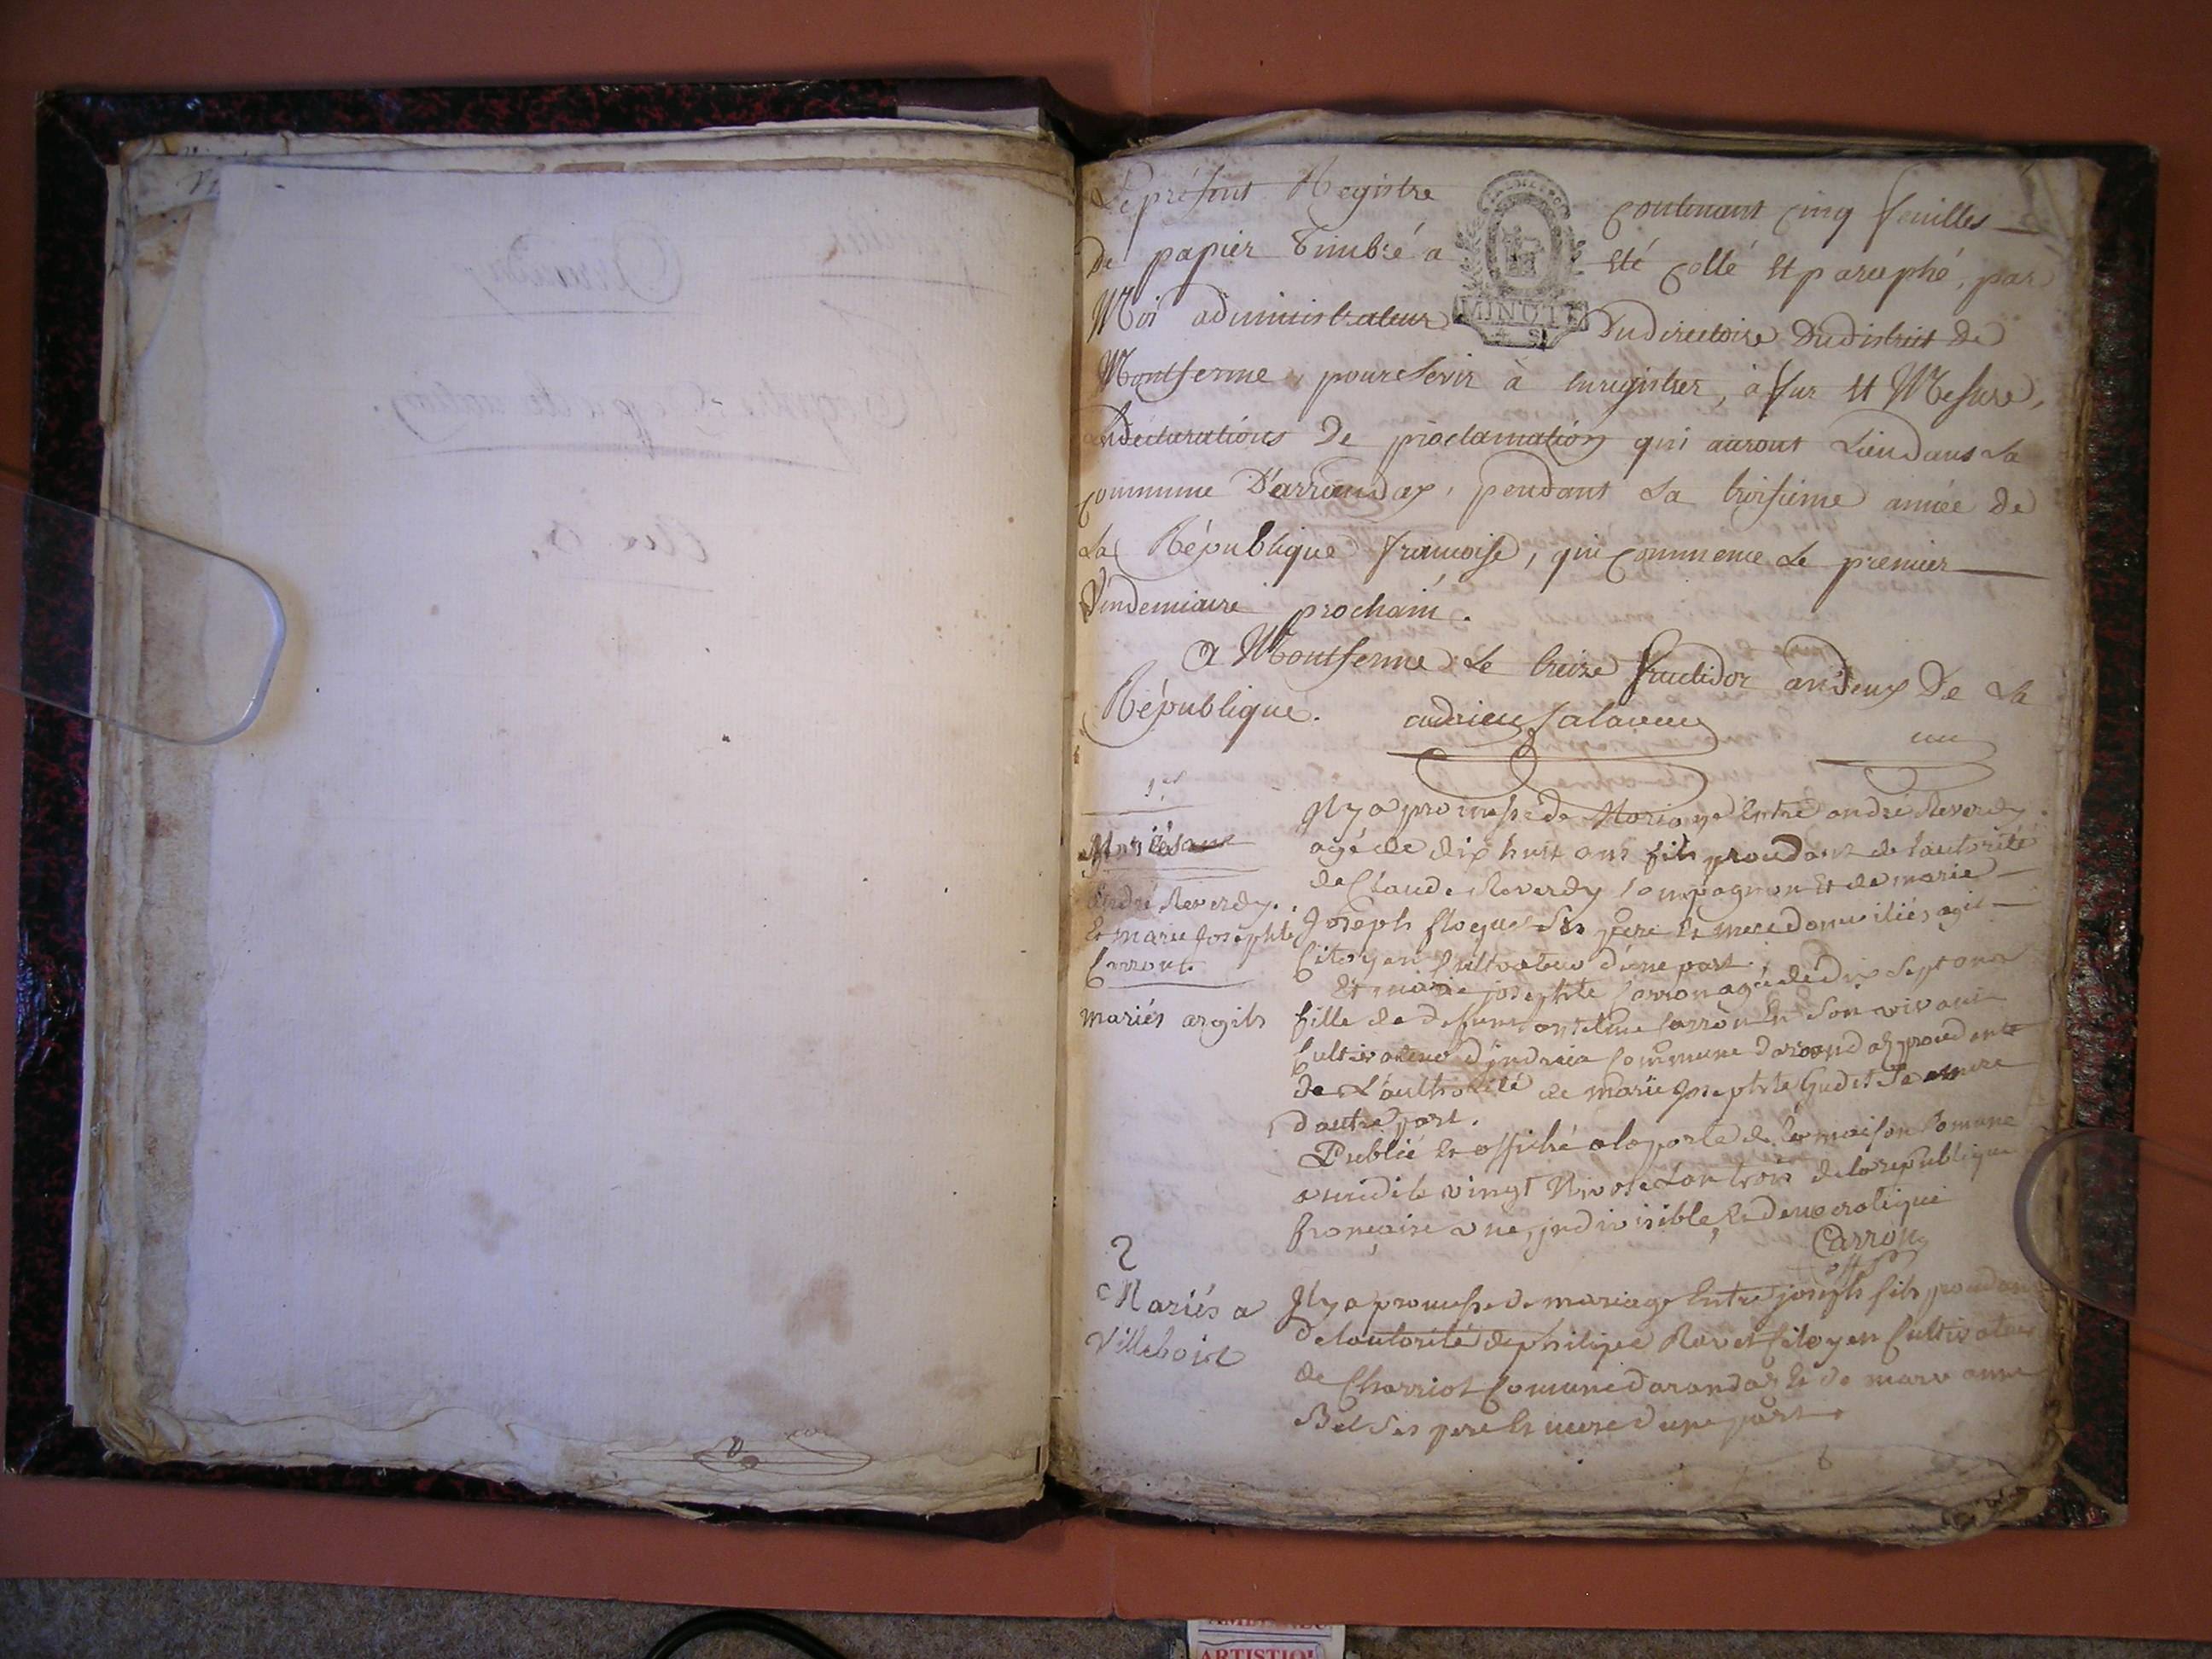 Le présent Registre contenant cinq feuilles
De papier Timbré a Eté Collé Et paraphé, par
MINUTE
Moi administrateur Du directoire Du district De
Montferme, pour servir à Enregistrer, à fur Et Mesure,
déclarations De proclamation qui auront Lieu dans La
commune D'arrandax, pendant La troisième année De
La République françoise, qui Commence Le premier
Vindemiaire prochain.
A Montferme Le treize fructidor an deux De La
République.
1er
Mariés
André Reverdy.
Et marie Josephte
Carront
mariés argils
Il y a promesse de Mariage Entre andré Reverdy
agé de dix huit ans fils proudant de l'autorité
de Claude Reverdy Compagnon Et de marie
Joseph floque Ses pere Et mere domiciliés agis
Citoyen Cultivateur d'une part.
Et marie josephte Carron agée de dix Sept ans
fille de defunt antelme Carron En Son vivant
Cultivateur d'indrieu Commune darandas proudante
de L'authorité de marie Josephte Gudet Sa mere
d'autre part.
Publié Et affiché a la porte de la maison Comune
a midi le vingt Nivose Lan trois de la republique
française une, indivisible, Et democratique
Carron
off. p.
2
Mariés a
Villebois
Il y a promesse de mariage Entre joseph fils proudant
de lautorité de philipe Ravet Citoyen Cultivateur
de Charriot Comune darandas Et de marie anne
Bel Ses pere Et mere d'une part
ARTISTIQ